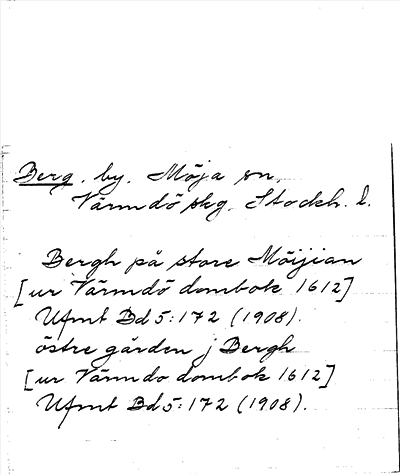 Berg. by. Möja sn.
Värmdö skg. Stockh. l.
Bergh på store Möijian
[ur Värmdö dombok 1612]
Ufmt Bd 5:172 (1908).
östre gården j Bergh
[ur Värmdö dombok 1612]
Ufmt Bd 5:172 (1908).